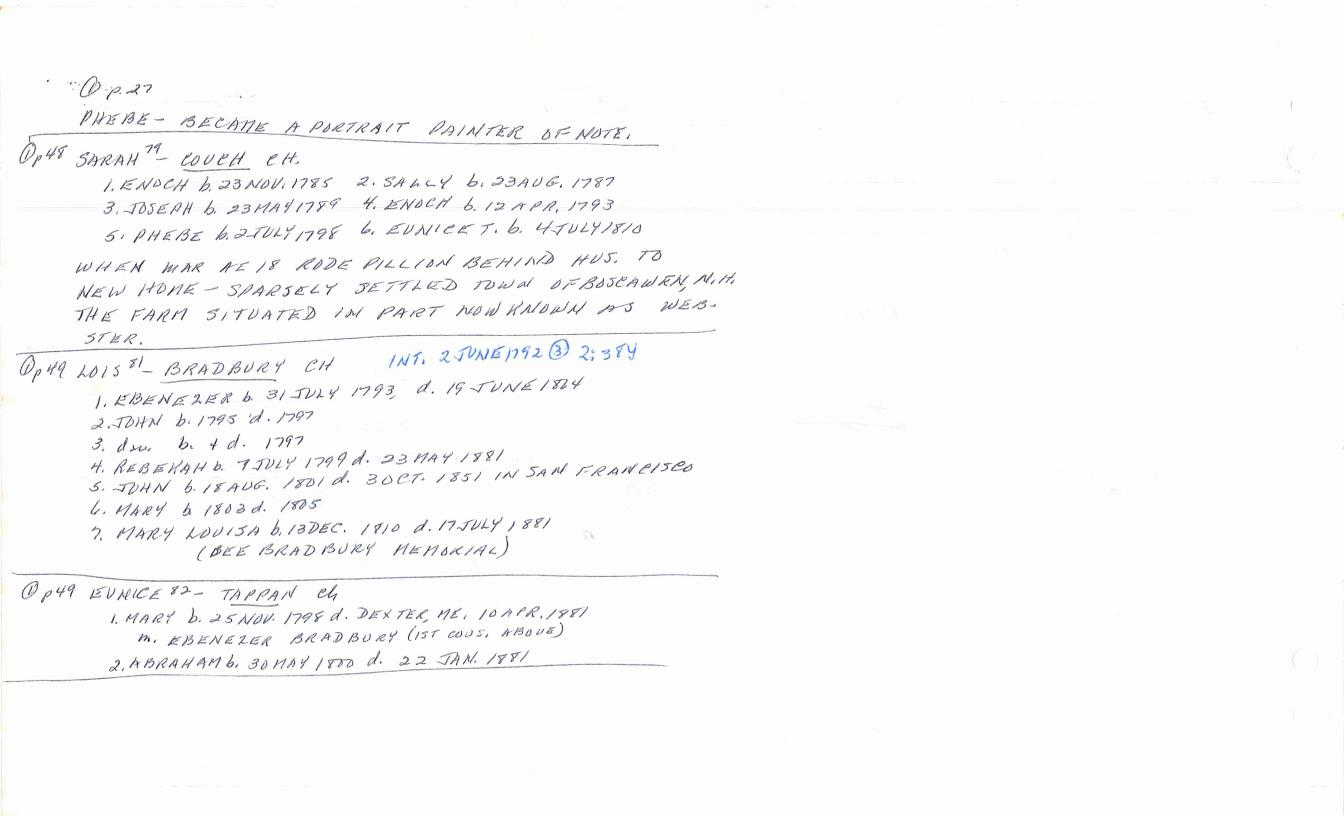 ① p. 27
PHEBE - BECAME A PORTRAIT PAINTER OF NOTE.
① p48 SARAH 79 - COUCH CH.
1. ENOCH b. 23 NOV. 1785 2. SALLY b. 23 AUG. 1787
3. JOSEPH b. 23 MAY 1789 4. ENOCH b. 12 APR. 1793
5. PHEBE b. 2 JULY 1798 6. EUNICE T. b. 4 JULY 1810
WHEN MAR AE 18 RODE PILLION BEHIND HUS. TO
NEW HOME - SPARSELY SETTLED TOWN OF BOSCAWEN, N.H.
THE FARM SITUATED IN PART NOW KNOWN AS WEB-
STER.
① p49 LOIS 81 - BRADBURY CH INT. 2 JUNE 1792 ③ 2:384
1. EBENEZER b. 31 JULY 1793, d. 19 JUNE 1864
2. JOHN b. 1795 d. 1797
3. dau. b. + d. 1797
4. REBEKAH b. 7 JULY 1799 d. 23 MAY 1881
5. JOHN b. 18 AUG. 1801 d. 3 OCT. 1851 IN SAN FRANCISCO
6. MARY b 1803 d. 1805
7. MARY LOUISA b. 13 DEC. 1810 d. 17 JULY 1881
(SEE BRADBURY MEMORIAL)
① p49 EUNICE 82 - TAPPAN Ch
1. MARY b. 25 NOV. 1798 d. DEXTER, ME. 10 APR. 1881
m. EBENEZER BRADBURY (1ST COUS. ABOVE)
2. ABRAHAM b. 30 MAY 1800 d. 22 JAN. 1881